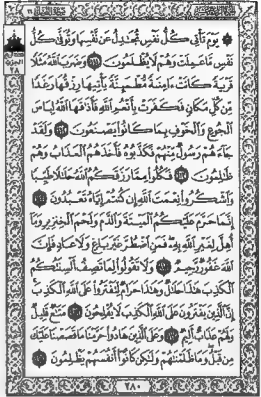 ۞ يَوْمَ تَأْتِي كُلُّ نَفْسٍ تُجَادِلُ عَن نَّفْسِهَا وَتُوَفَّىٰ كُلُّ
نَفْسٍ مَّا عَمِلَتْ وَهُمْ لَا يُظْلَمُونَ ۝ وَضَرَبَ اللَّهُ مَثَلًا
قَرْيَةً كَانَتْ ءَامِنَةً مُّطْمَئِنَّةً يَأْتِيهَا رِزْقُهَا رَغَدًا
مِّن كُلِّ مَكَانٍ فَكَفَرَتْ بِأَنْعُمِ اللَّهِ فَأَذَاقَهَا اللَّهُ لِبَاسَ
الْجُوعِ وَالْخَوْفِ بِمَا كَانُوا يَصْنَعُونَ ۝ وَلَقَدْ
جَاءَهُمْ رَسُولٌ مِّنْهُمْ فَكَذَّبُوهُ فَأَخَذَهُمُ الْعَذَابُ وَهُمْ
ظَالِمُونَ ۝ فَكُلُوا مِمَّا رَزَقَكُمُ اللَّهُ حَلَالًا طَيِّبًا
وَاشْكُرُوا نِعْمَتَ اللَّهِ إِن كُنتُمْ إِيَّاهُ تَعْبُدُونَ ۝
إِنَّمَا حَرَّمَ عَلَيْكُمُ الْمَيْتَةَ وَالدَّمَ وَلَحْمَ الْخِنزِيرِ وَمَا
أُهِلَّ لِغَيْرِ اللَّهِ بِهِ فَمَنِ اضْطُرَّ غَيْرَ بَاغٍ وَلَا عَادٍ فَإِنَّ
اللَّهَ غَفُورٌ رَّحِيمٌ ۝ وَلَا تَقُولُوا لِمَا تَصِفُ أَلْسِنَتُكُمُ
الْكَذِبَ هَٰذَا حَلَالٌ وَهَٰذَا حَرَامٌ لِّتَفْتَرُوا عَلَى اللَّهِ الْكَذِبَ
إِنَّ الَّذِينَ يَفْتَرُونَ عَلَى اللَّهِ الْكَذِبَ لَا يُفْلِحُونَ ۝ مَتَاعٌ قَلِيلٌ
وَلَهُمْ عَذَابٌ أَلِيمٌ ۝ وَعَلَى الَّذِينَ هَادُوا حَرَّمْنَا مَا قَصَصْنَا عَلَيْكَ
مِن قَبْلُ وَمَا ظَلَمْنَاهُمْ وَلَٰكِن كَانُوا أَنفُسَهُمْ يَظْلِمُونَ ۝
٢٨٠